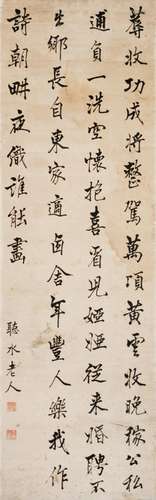 蓐收功成將整駕萬頃黃雲收晚稼公私
逋負一洗空懷抱喜看兒婭婭從來婚聘不
出鄉長自東家適西舍年豐人樂我作
詩朝畊夜織誰能畫
聽水老人